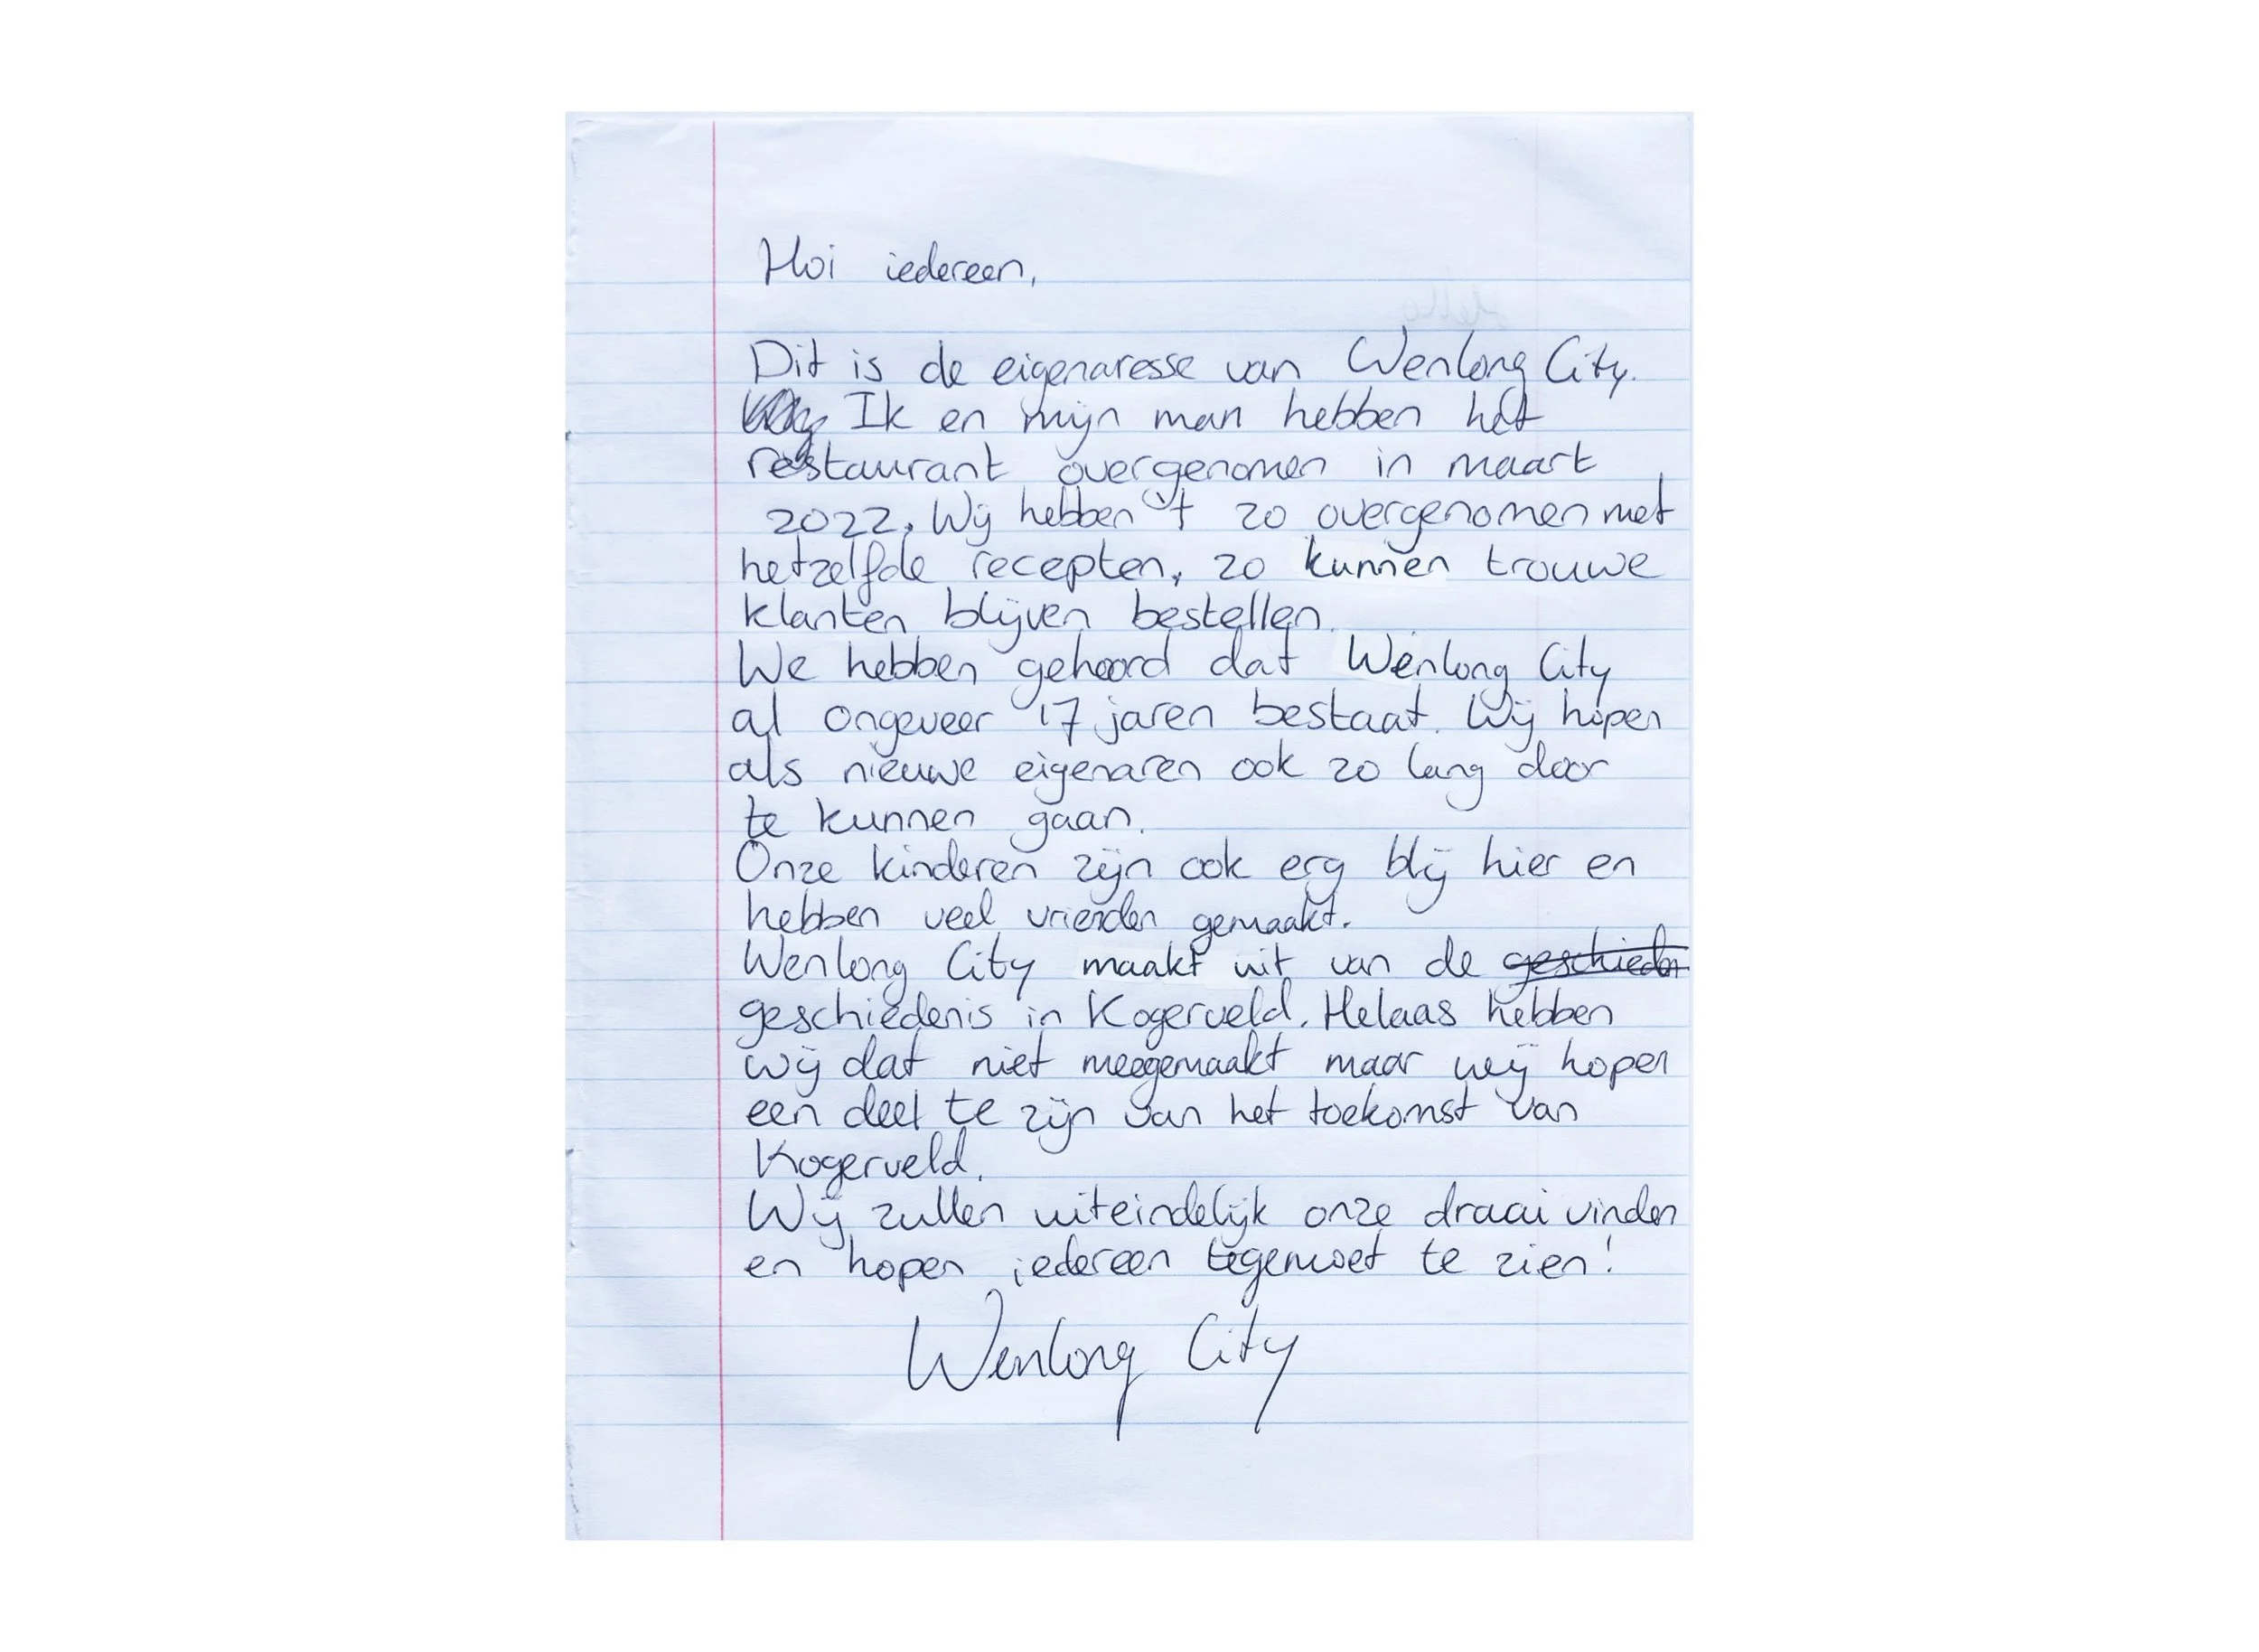 Hoi iedereen,
Dit is de eigenaresse van Wenlong City.
Ik en mijn man hebben het
restaurant overgenomen in maart
2022. Wij hebben 't zo overgenomen met
hetzelfde recepten, zo kunnen trouwe
klanten blijven bestellen.
We hebben gehoord dat Wenlong City
al ongeveer 17 jaren bestaat. Wij hopen
als nieuwe eigenaren ook zo lang door
te kunnen gaan.
Onze kinderen zijn ook erg blij hier en
hebben veel vrienden gemaakt.
Wenlong City maakt uit van de geschieden
geschiedenis in Kogerveld. Helaas hebben
wij dat niet meegemaakt maar wij hopen
een deel te zijn van het toekomst van
Kogerveld.
Wij zullen uiteindelijk onze draai vinden
en hopen iedereen tegemoet te zien!
Wenlong City